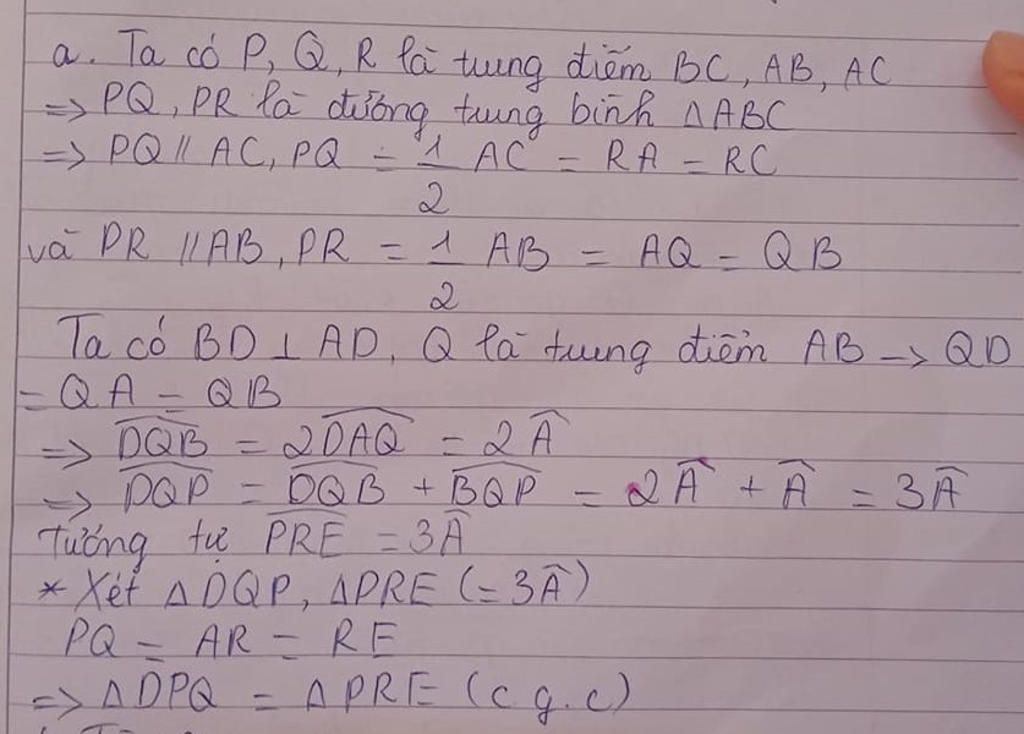 a. Ta có P, Q, R là trung điểm BC, AB, AC
=> PQ, PR là đường trung bình ΔABC
=> PQ // AC, PQ = 1/2 AC = RA = RC
và PR // AB, PR = 1/2 AB = AQ = QB
Ta có BD ⊥ AD, Q là trung điểm AB -> QD
= QA = QB
=> \widehat{DQB} = 2\widehat{DAQ} = 2\widehat{A}
=> \widehat{DQP} = \widehat{DQB} + \widehat{BQP} = 2\widehat{A} + \widehat{A} = 3\widehat{A}
Tương tự \widehat{PRE} = 3\widehat{A}
* Xét ΔDQP, ΔPRE (= 3\widehat{A})
PQ = AR = RE
=> ΔDPQ = ΔPRE (c g.c)